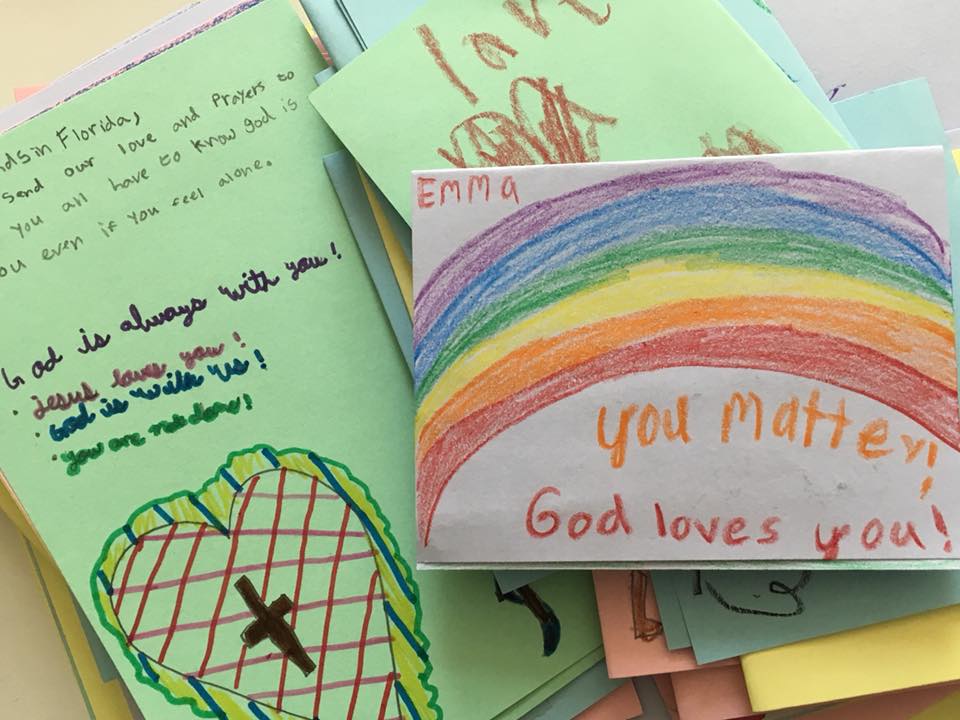 in Florida,
send our love and Prayers to
you all have to know god is
even if you feel alone.
God is always with you!
· Jesus loves you!
· God is with us!
· you are not alone!
EMMA
you Matter!
God loves you!